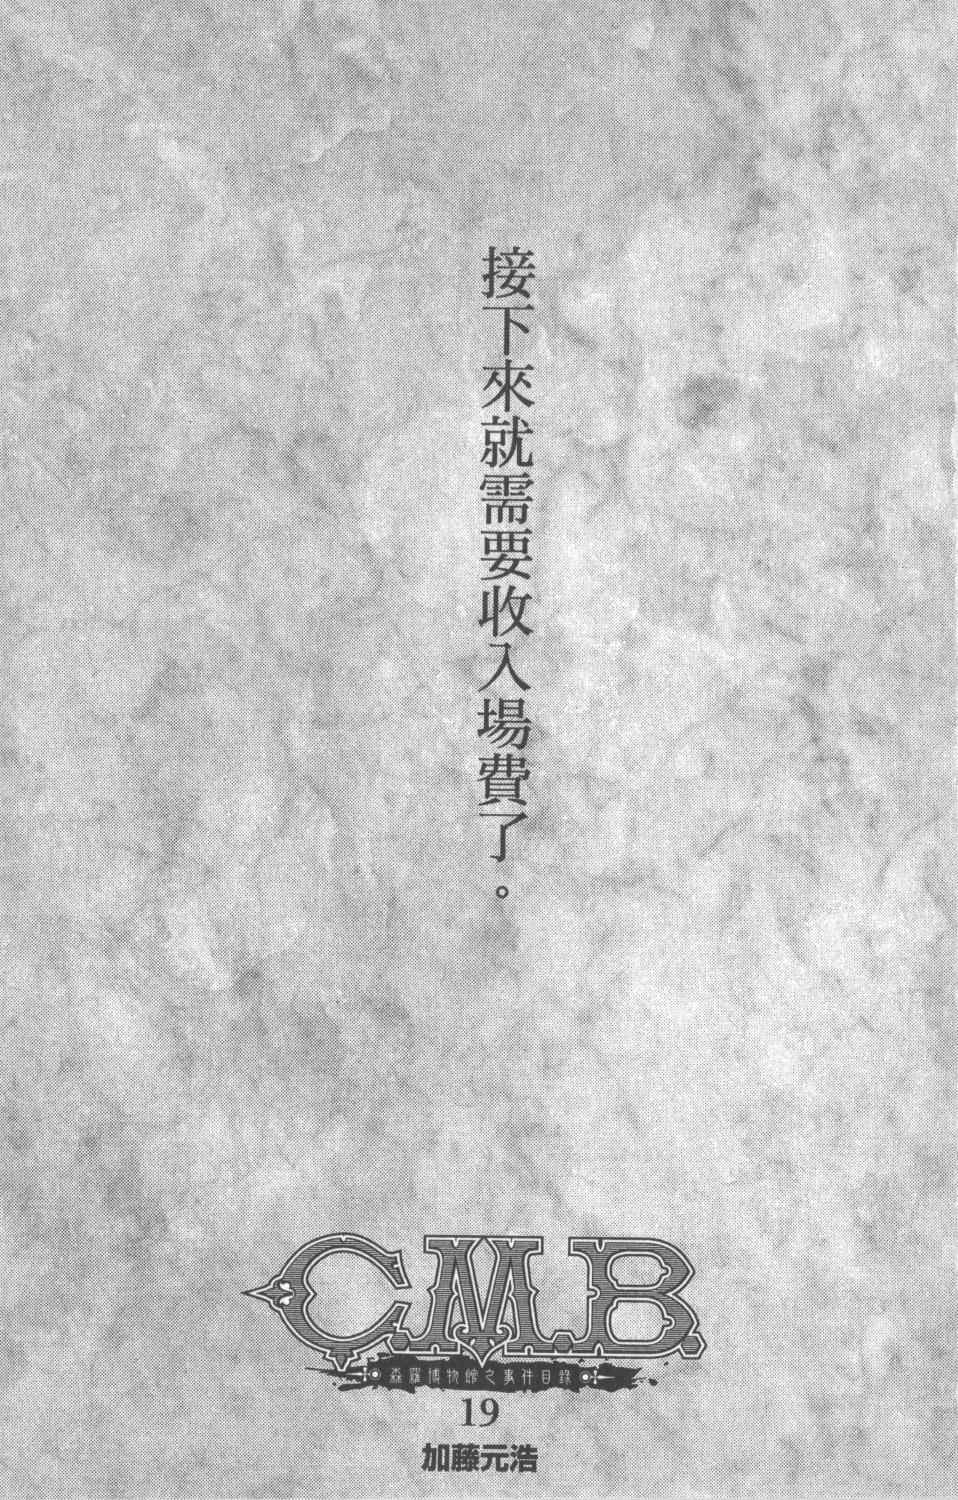 接下來就需要收入場費了。
C.M.B.
森羅博物館之事件目錄
19
加藤元浩